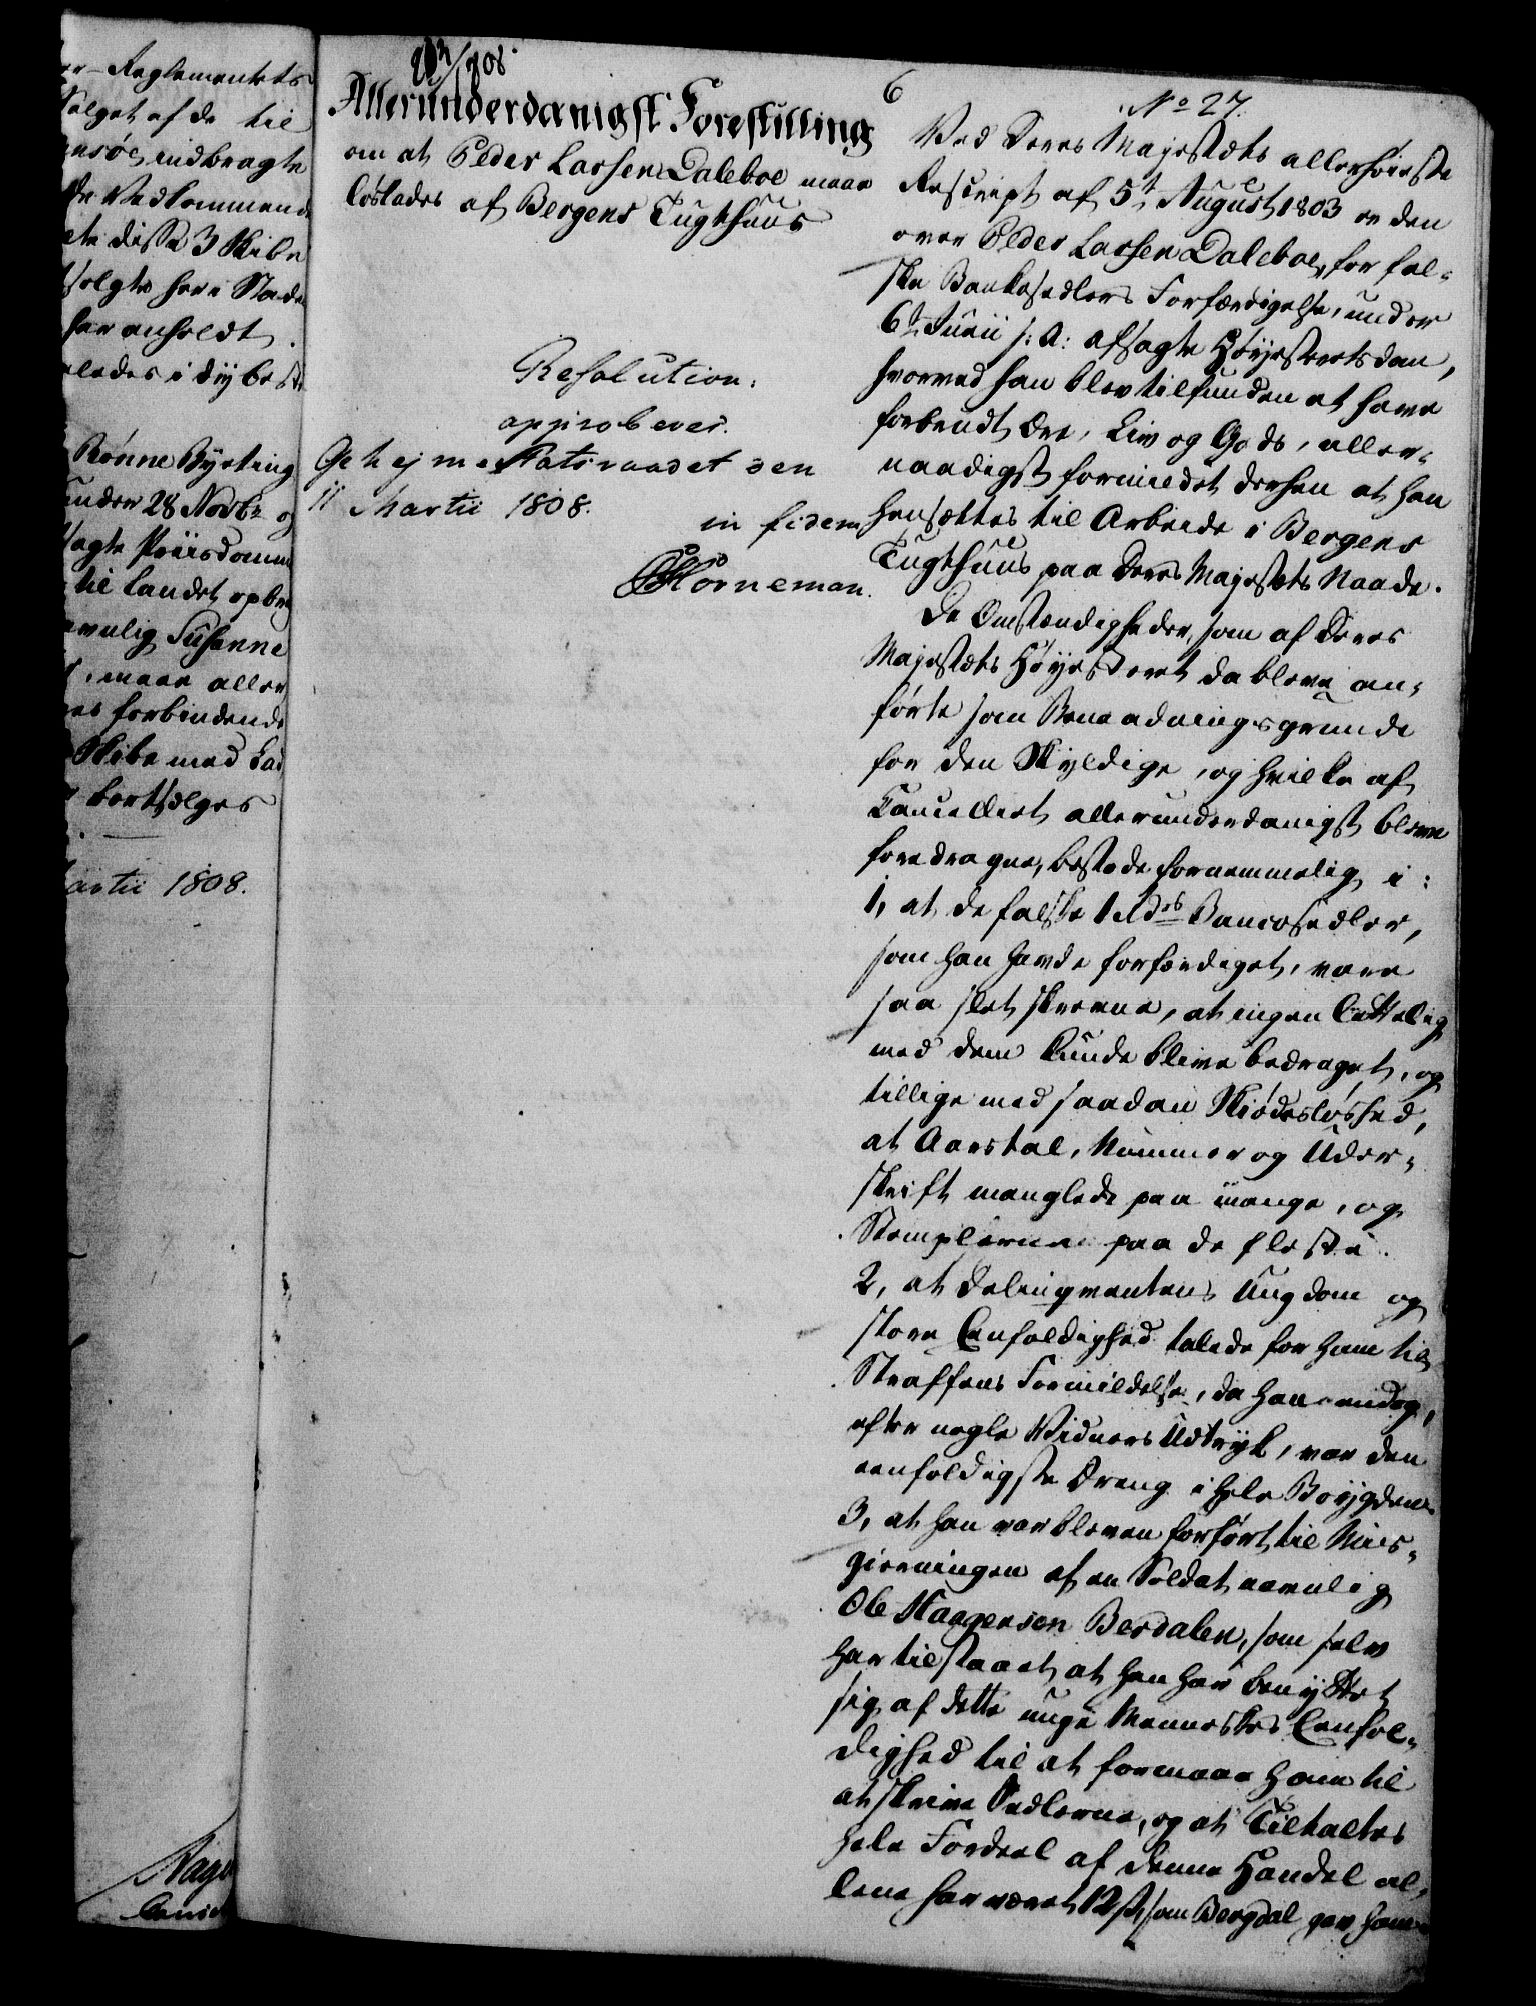 er-Reglementets
Salget af de til
indbragte
Vedkommende
disse 3 Skibe
solgte
har anholdt.
aledes i dÿbeste
Rønne Bÿeting
under 28 Novbr og
sagte Priisdomme
til Landet opbr
nemlig Susanne
maae aller
forbindende
Skibe med Lad
bortsælges
Martii 1808.
Allerunderdanigst Forestilling
om at Peder Larsen Daleboe maae
løslades af Bergens Tugthuus
Resolution:
approberes.
Gehejme Statsraadet den
11 Martii 1808.
in fidem
Horneman.
6
No 27.
Ved Deres Majestæts allerhøieste
Rescript af 5t August 1803 er den
over Peder Larsen Daleboe, for fal-
ske Bankosedlers Forfærdigelse, under
6te Junii s: A: afsagte Høÿesteretsdom,
hvorved han blev tilfunden at have
forbrudt Ære, Liv og Gods, aller-
naadigst formildet derhen at han
hensættes til Arbeide i Bergens
Tugthuus paa Deres Majestæts Naade.
De Omstændigheder, som af Deres
Majestæts Høÿesteret da bleve an-
førte som Benaadningsgrunde
for den Skÿldige, og hvilke af
Cancelliet allerunderdanigst bleve
foredragne, bestode fornemmelig i:
1, at de falske 1 Rdrs Bancosedler,
som han havde forfærdiget, vare
saa slet skrevne, at ingen lettelig
med dem kunde blive bedraget, og
tillige med saadan Skiødesløshed,
at Aarstal, Nummer og Under-
skrift manglede paa mange, og
Stemplerne paa de fleste.
2, at Delinqventens Ungdom og
store Eenfoldighed talede for ham til
Straffens Formildelse, da han endog,
efter nogle Vidners Udtryk, var den
eenfoldigste Dreng i hele Boÿgden
3, at han var bleven forført til Mis-
gierningen af en Soldat navnlig
Ole Haagensen Berdalen, som selv
har tilstaaet at han har benÿttet
sig af dette unge Menneskes Eenfol-
dighed til at formaae ham til
at skrive Sedlerne, og at Tiltaltes
hele Fordeel af denne Handel al-
lene har været 12 s, som Bergdal gav ham